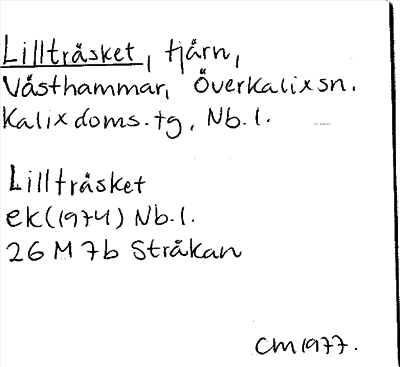 Lillträsket, tjärn,
Västhammar, Överkalix sn.
Kalix doms. tg, Nb. l.
Lillträsket
ek (1974) Nb. l.
26 M 7b Sträkan
CM 1977.